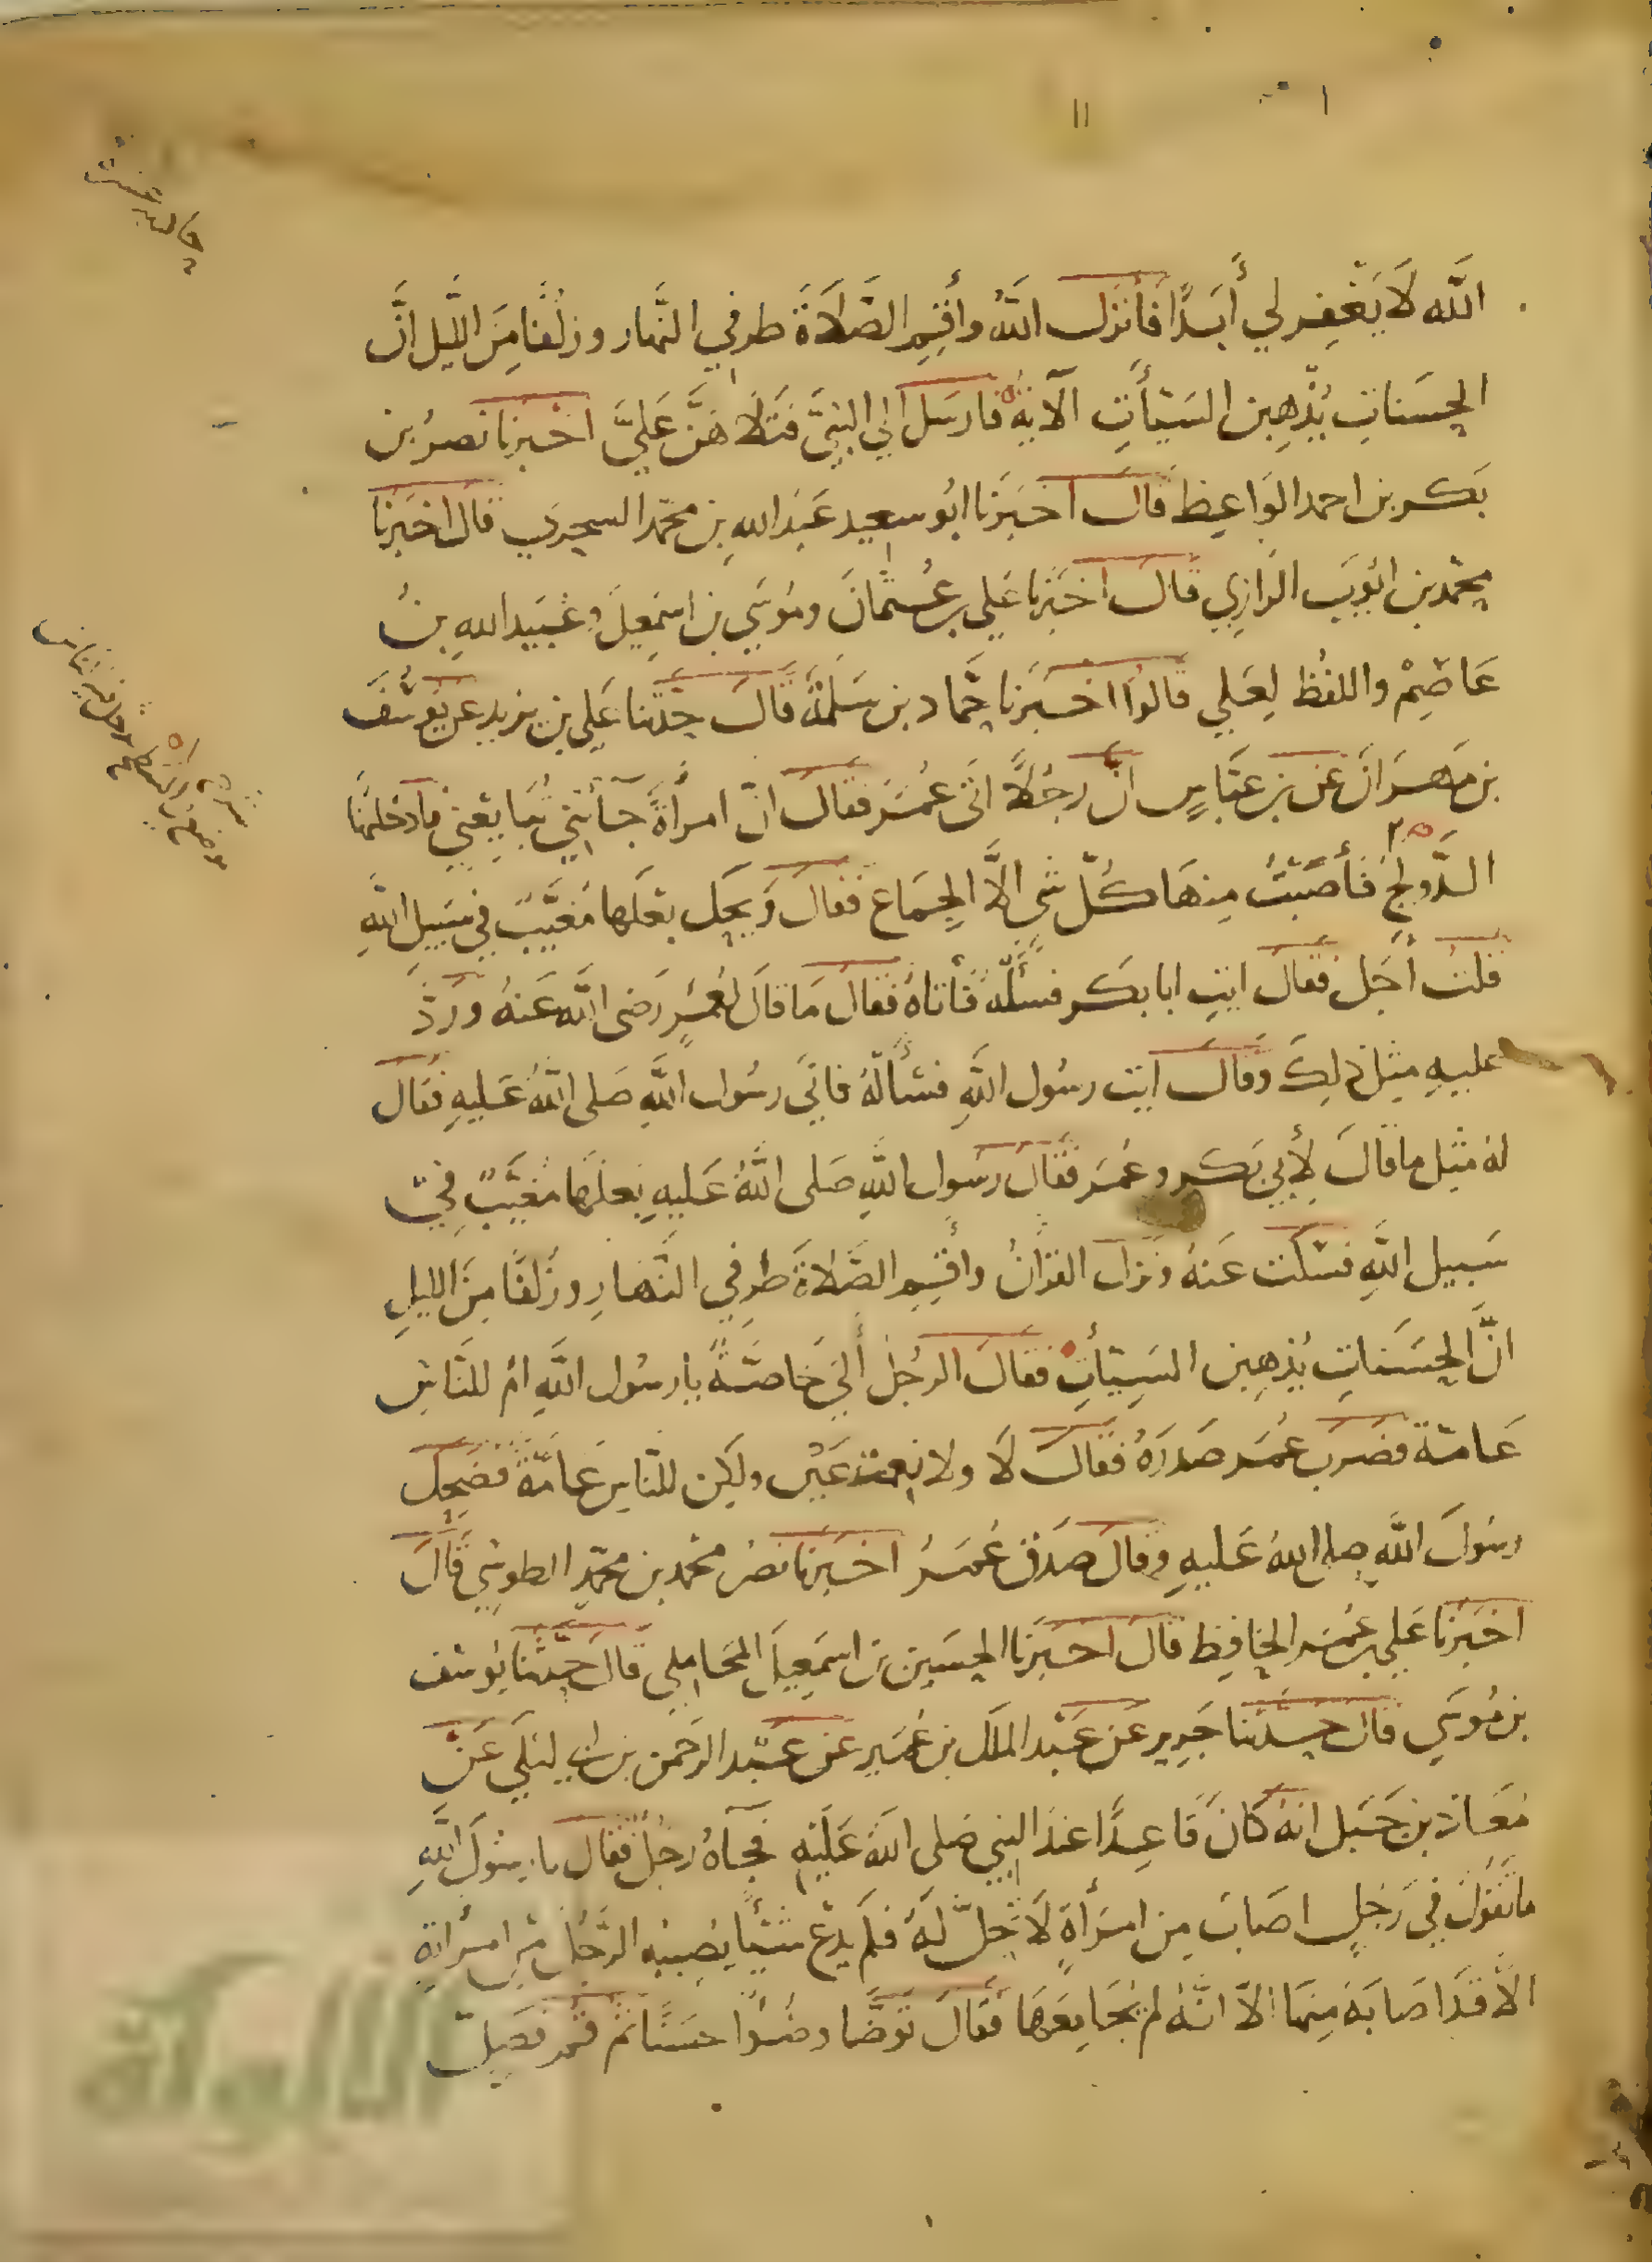 الله لَا يَغْفِر لي أَبَدًا فأنزل اللهُ وأَقِمِ الصَّلَاةَ طرفي النَّهار وزُلَفًا مِنَ اللَّيل انَّ
الحسَناتِ يُذْهِبن السَيّأَتِ الآيةُ فارسَل الي النبيَّ فتَلَاهُنَّ عَليَّ اخبَرنا نصرُ بن
بَكر بن احمد الوَاعِظ قال اخبَرَنا ابُو سعِيد عَبَدُ اللهِ بن محمّد السجزي قال اخبَرنا
محمّد بن ايّوبَ الرَّازِي قالَ اخبَرنا عَلي بن عُثمانَ ومُوسَي بن اسمعِيلَ وعُبَيد اللهِ بنُ
عَاصِمْ واللفُظ لعَلي قالوُا اخبَرنا حَمّاد بن سَلمةَ قالَ حدّثنا عَلي بن يزيد عن يُوسُفَ
بن مَهرَانَ عَن بن عبَّاسٍ انَّ رجُلاً اتَى عُمَرَ فقالَ انّ امرأةً جآئتني تُبَايِعُنِي فادخلتهَا
الدَّولجَ فأصَبتُ مِنهَا كُلّ شي الَّا الجِمَاع فقالَ وَيحَكَ بَعْلَها مُغَيَّبٌ في سَبِيل اللهِ
قلتُ أجَل فقالَ ايتِ ابا بَكر فسَأَلّه فأتاهُ فقالَ مَا قالَ لعُمَرٍ رَضى الله عَنهُ وردَّ
عليهِ مِثل ذلِكَ وقالَ ايت رسُول اللهِ فسَألهُ فاتيَ رسُول اللهِ صَلى اللهُ عَليهِ فقال
له مَثِل ما قالَ لِأبي بَكر وعُمَر فقالَ رسُول اللهِ صَلى اللهُ عَليهِ بَعلهَا مغَيَّبٌ في
سَبيل اللهِ فسَكت عَنهُ ونزلَ القرْانُ وأَقِمِ الصَّلاةَ طَرفي النَّهارِ وزُلفًا مِنَ الليلِ
انَّ الحسَناتِ يُذهِبن السَيّأتِ فقالَ الرجُل أَليَ خَاصّةً يا رسُول اللهِ امْ للنَّاسِ
عَامّة فضَربَ عُمَر صَدرَهُ فقالَ لَا ولا نعمَة عَين ولكِن للنّاسِ عَامّةً فضحِكَ
رسُولَ اللهِ صلى اللهُ عَليهِ وقالَ صدَق عُمَرُ اخبَرنا نصرُ محمّد بن محمّدٍ الطوسِي قالَ
اخبَرنا عَلي بن عُمَر الحَافِظ قالَ اخبَرنا الحسَين بن اسمَعيلَ المحَامِلي قالَ حدّثنا يُوسُف
بن مُوسَي قالَ حدّثنا جَرير عَن عَبد الملك بن عُمَيرٍ عَن عَبد الرحمَن بن ابي ليَلَي عَنْ
مُعَاذ بن جَبَل انّهُ كانَ قاعِدًا عندَ النبي صَلى اللهُ عَلَيْهِ فجآهُ رجُل فقال يا رسُولَ اللهِ
ما تقُولُ في رَجُلٍ اصَابَ مِن امرَأةٍ لَا تَحِلّ لهُ فلَم يدَعْ شَيْأ يُصِيبُه الرَّجُل مِن امرأتهِ
الّا قدَ اصَابَهُ مِنهَا الّا انّهُ لم يُجَامِعهَا فقالَ تَوَضَّا وضُوًا حسَنًا ثم قُمْ فصَلِّ